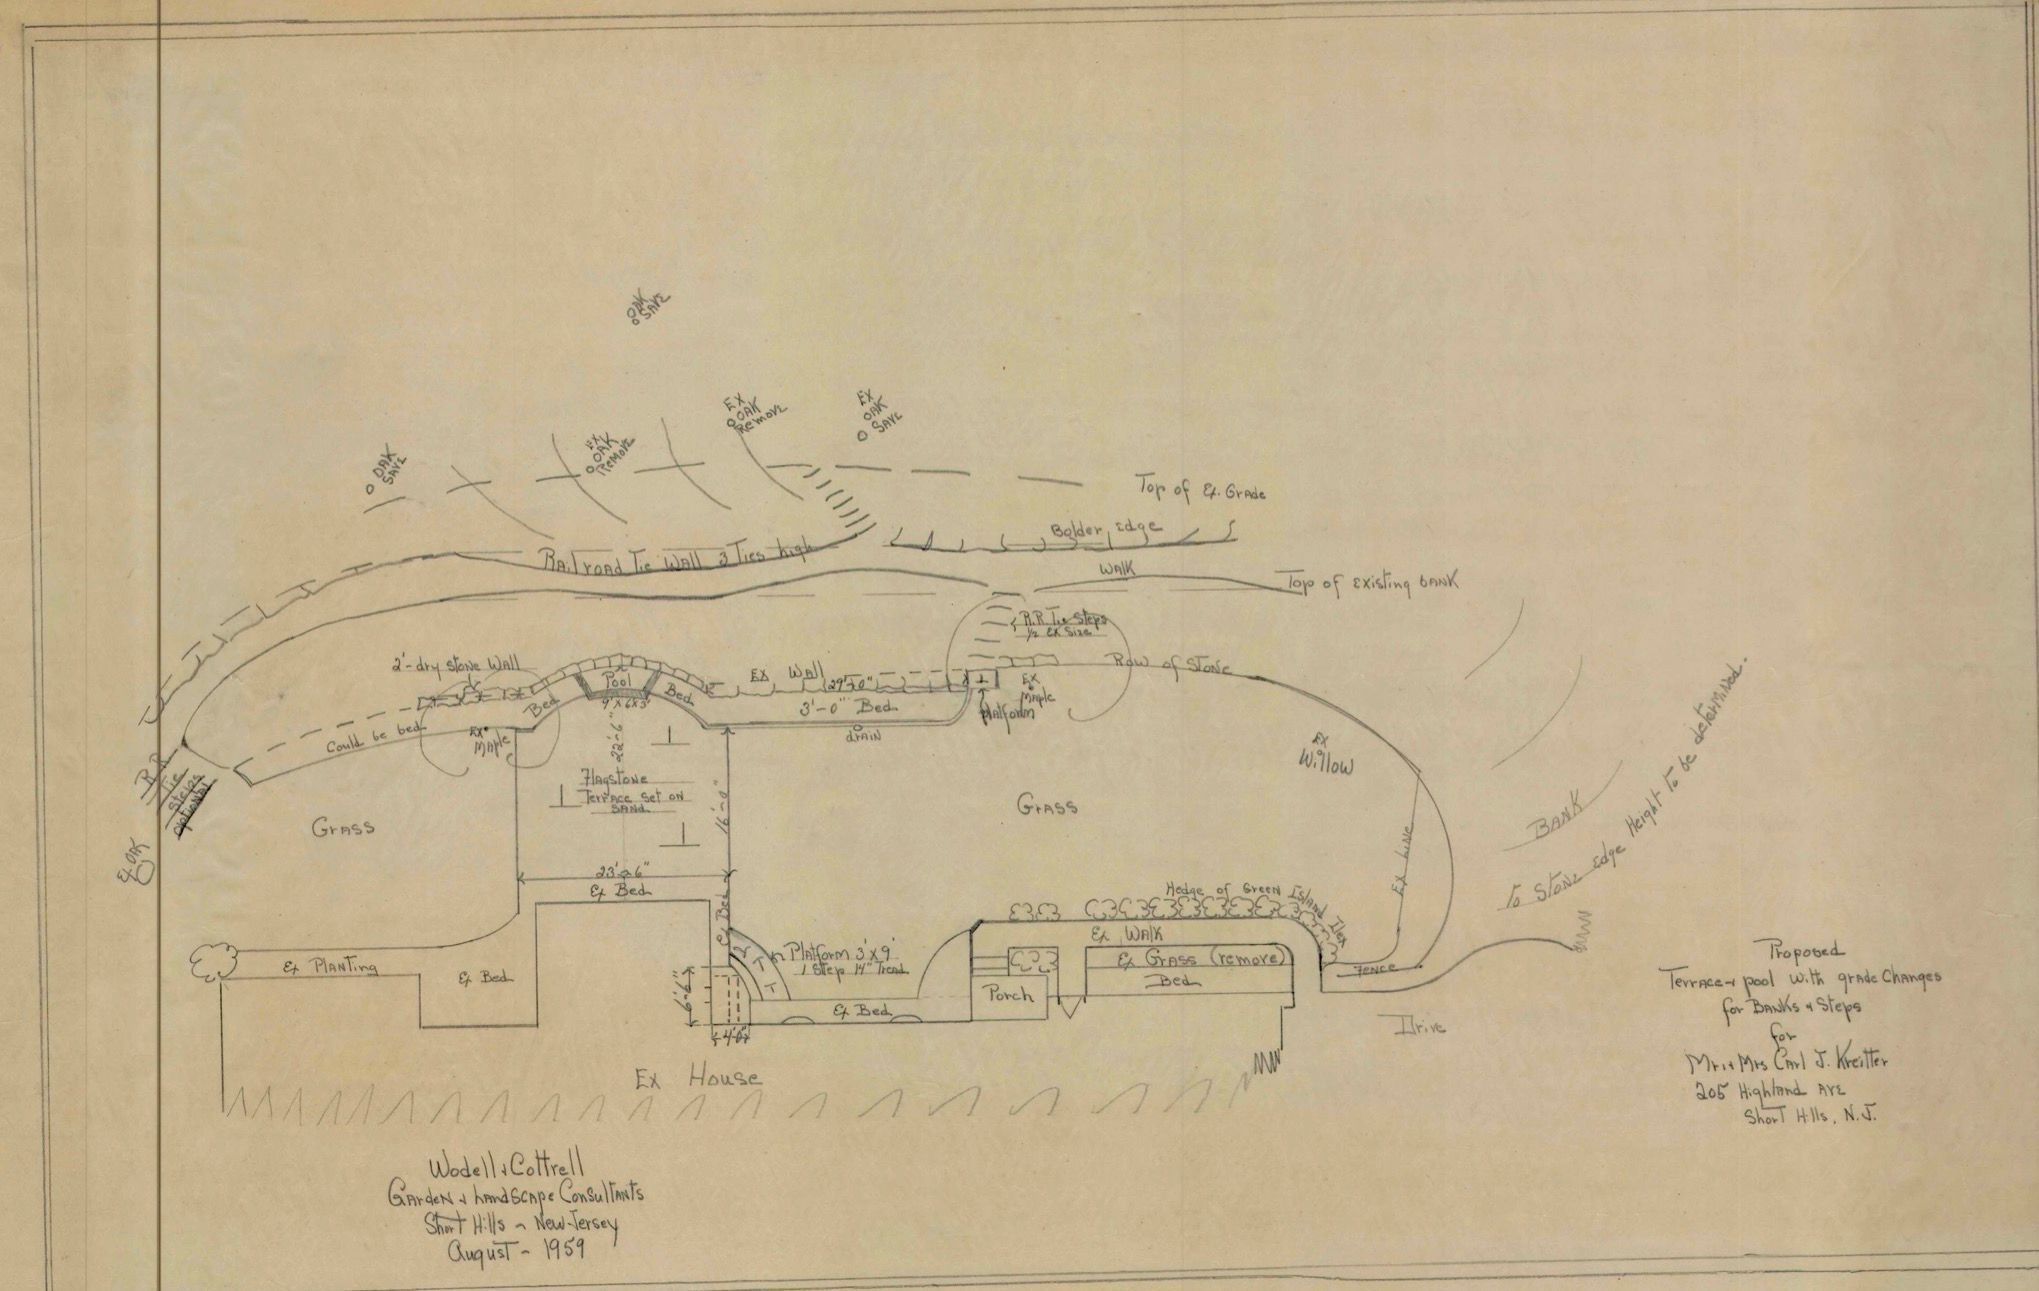 OAK
SAVE
EX
OAK
Remove
EX
OAK
SAVE
EX
OAK
Remove
OAK
SAVE
Top of Ex. Grade
Bolder Edge
Railroad Tie Wall 3 Ties high
WALK
Top of Existing bANK
R.R. Tie Steps
1/2 Ex Size
2'-dry stone Wall
Pool
9' x 6 x 3'
Bed
Bed
EX Wall
29'-0"
3'-0" Bed
drain
Platform
EX
Maple
Row of Stone
Could be bed
Ex
Maple
22'-6"
Flagstone
Terrace set on
SAND
16'-0"
R.R.
Tie
Steps
optional
Ex OAK
Grass
Grass
Ex
Willow
Ex Line
BANK
To Stone Edge Height to be determined.
23'-6"
Ex Bed
Ex Bed
Hedge of Green Island Ilex
Ex WALK
Ex Planting
Ex Bed
Platform 3'x9'
1 Step 14" Tread
Ex Grass (remove)
Bed
Fence
Porch
6'-6"
4'0"
Ex Bed
Drive
Ex House
Proposed
Terrace + pool with grade Changes
for Banks + Steps
for
Mr. + Mrs Carl J. Kreitler
205 Highland Ave
Short Hills, N.J.
Wodell + Cottrell
Garden + Landscape Consultants
Short Hills - New Jersey
August - 1959